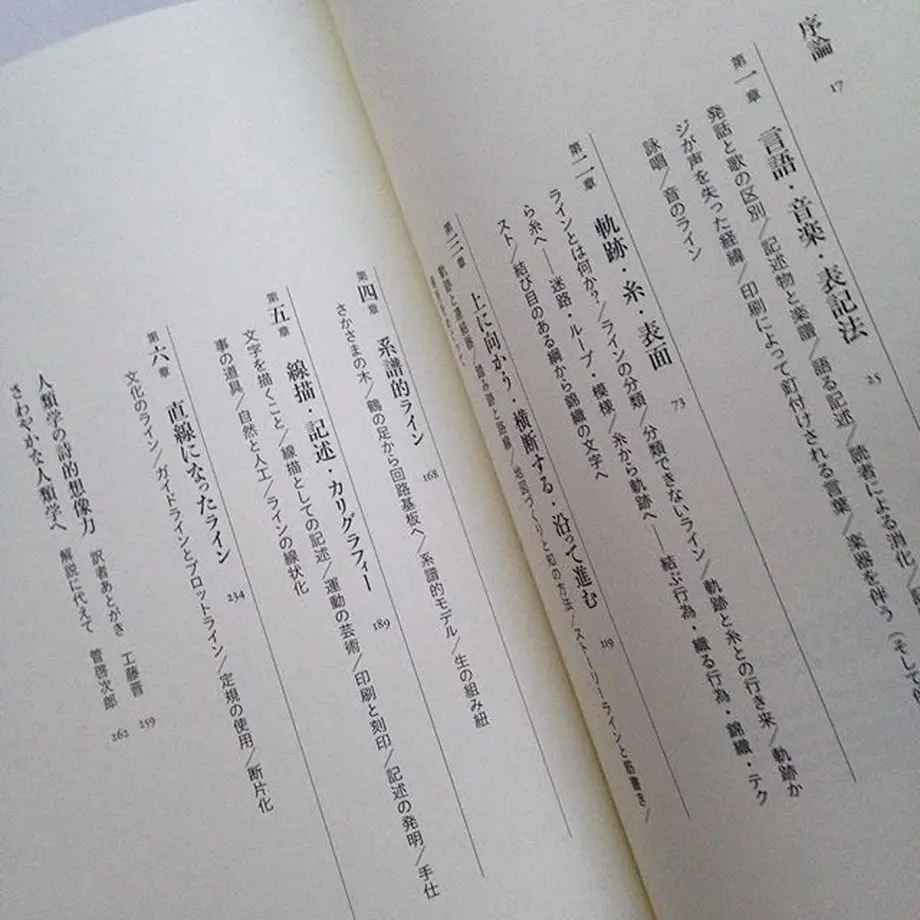 序論 17
第一章 言語・音楽・表記法 25
発話と歌の区別/記述物と楽譜/語る記述/読者による消化/
ジが声を失った経緯/印刷によって釘付けされる言葉/楽器を伴う(そして
詠唱/音のライン
第二章 軌跡・糸・表面 73
ラインとは何か?/ラインの分類/分類できないライン/軌跡と糸との行き来/軌跡か
ら糸へ――迷路・ループ・模様/糸から軌跡へ――結ぶ行為・織る行為・錦織・テク
スト/結び目のある綱から錦織の文字へ
第三章 上に向かう・横断する・沿って進む 119
軌跡と連結器/踏み跡と路線/地図づくりと知の方法/ストーリーラインと筋書き/
第四章 系譜的ライン 168
さかさまの木/鶴の足から回路基板へ/系譜的モデル/生の組み紐
第五章 線描・記述・カリグラフィー 189
文字を描くこと/線描としての記述/運動の芸術/印刷と刻印/記述の発明/手仕
事の道具/自然と人工/ラインの線状化
第六章 直線になったライン 234
文化のライン/ガイドラインとプロットライン/定規の使用/断片化
人類学の詩的想像力 訳者あとがき 工藤晋 259
さわやかな人類学へ 解説に代えて 管啓次郎 262